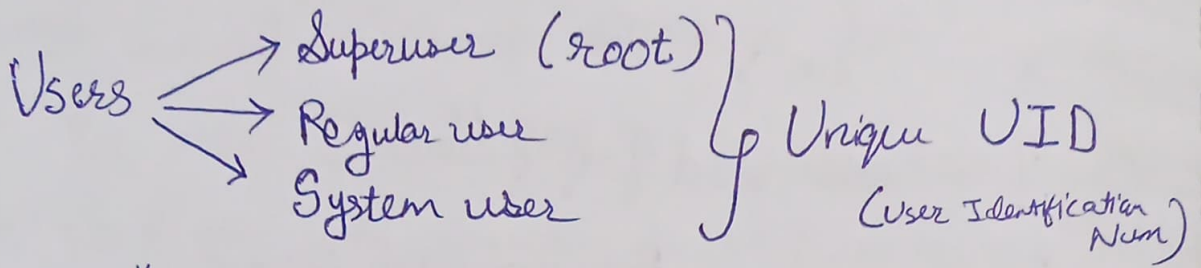 Users
Superuser (root)
Regular user
System user
Unique UID
(User Identification
Num)